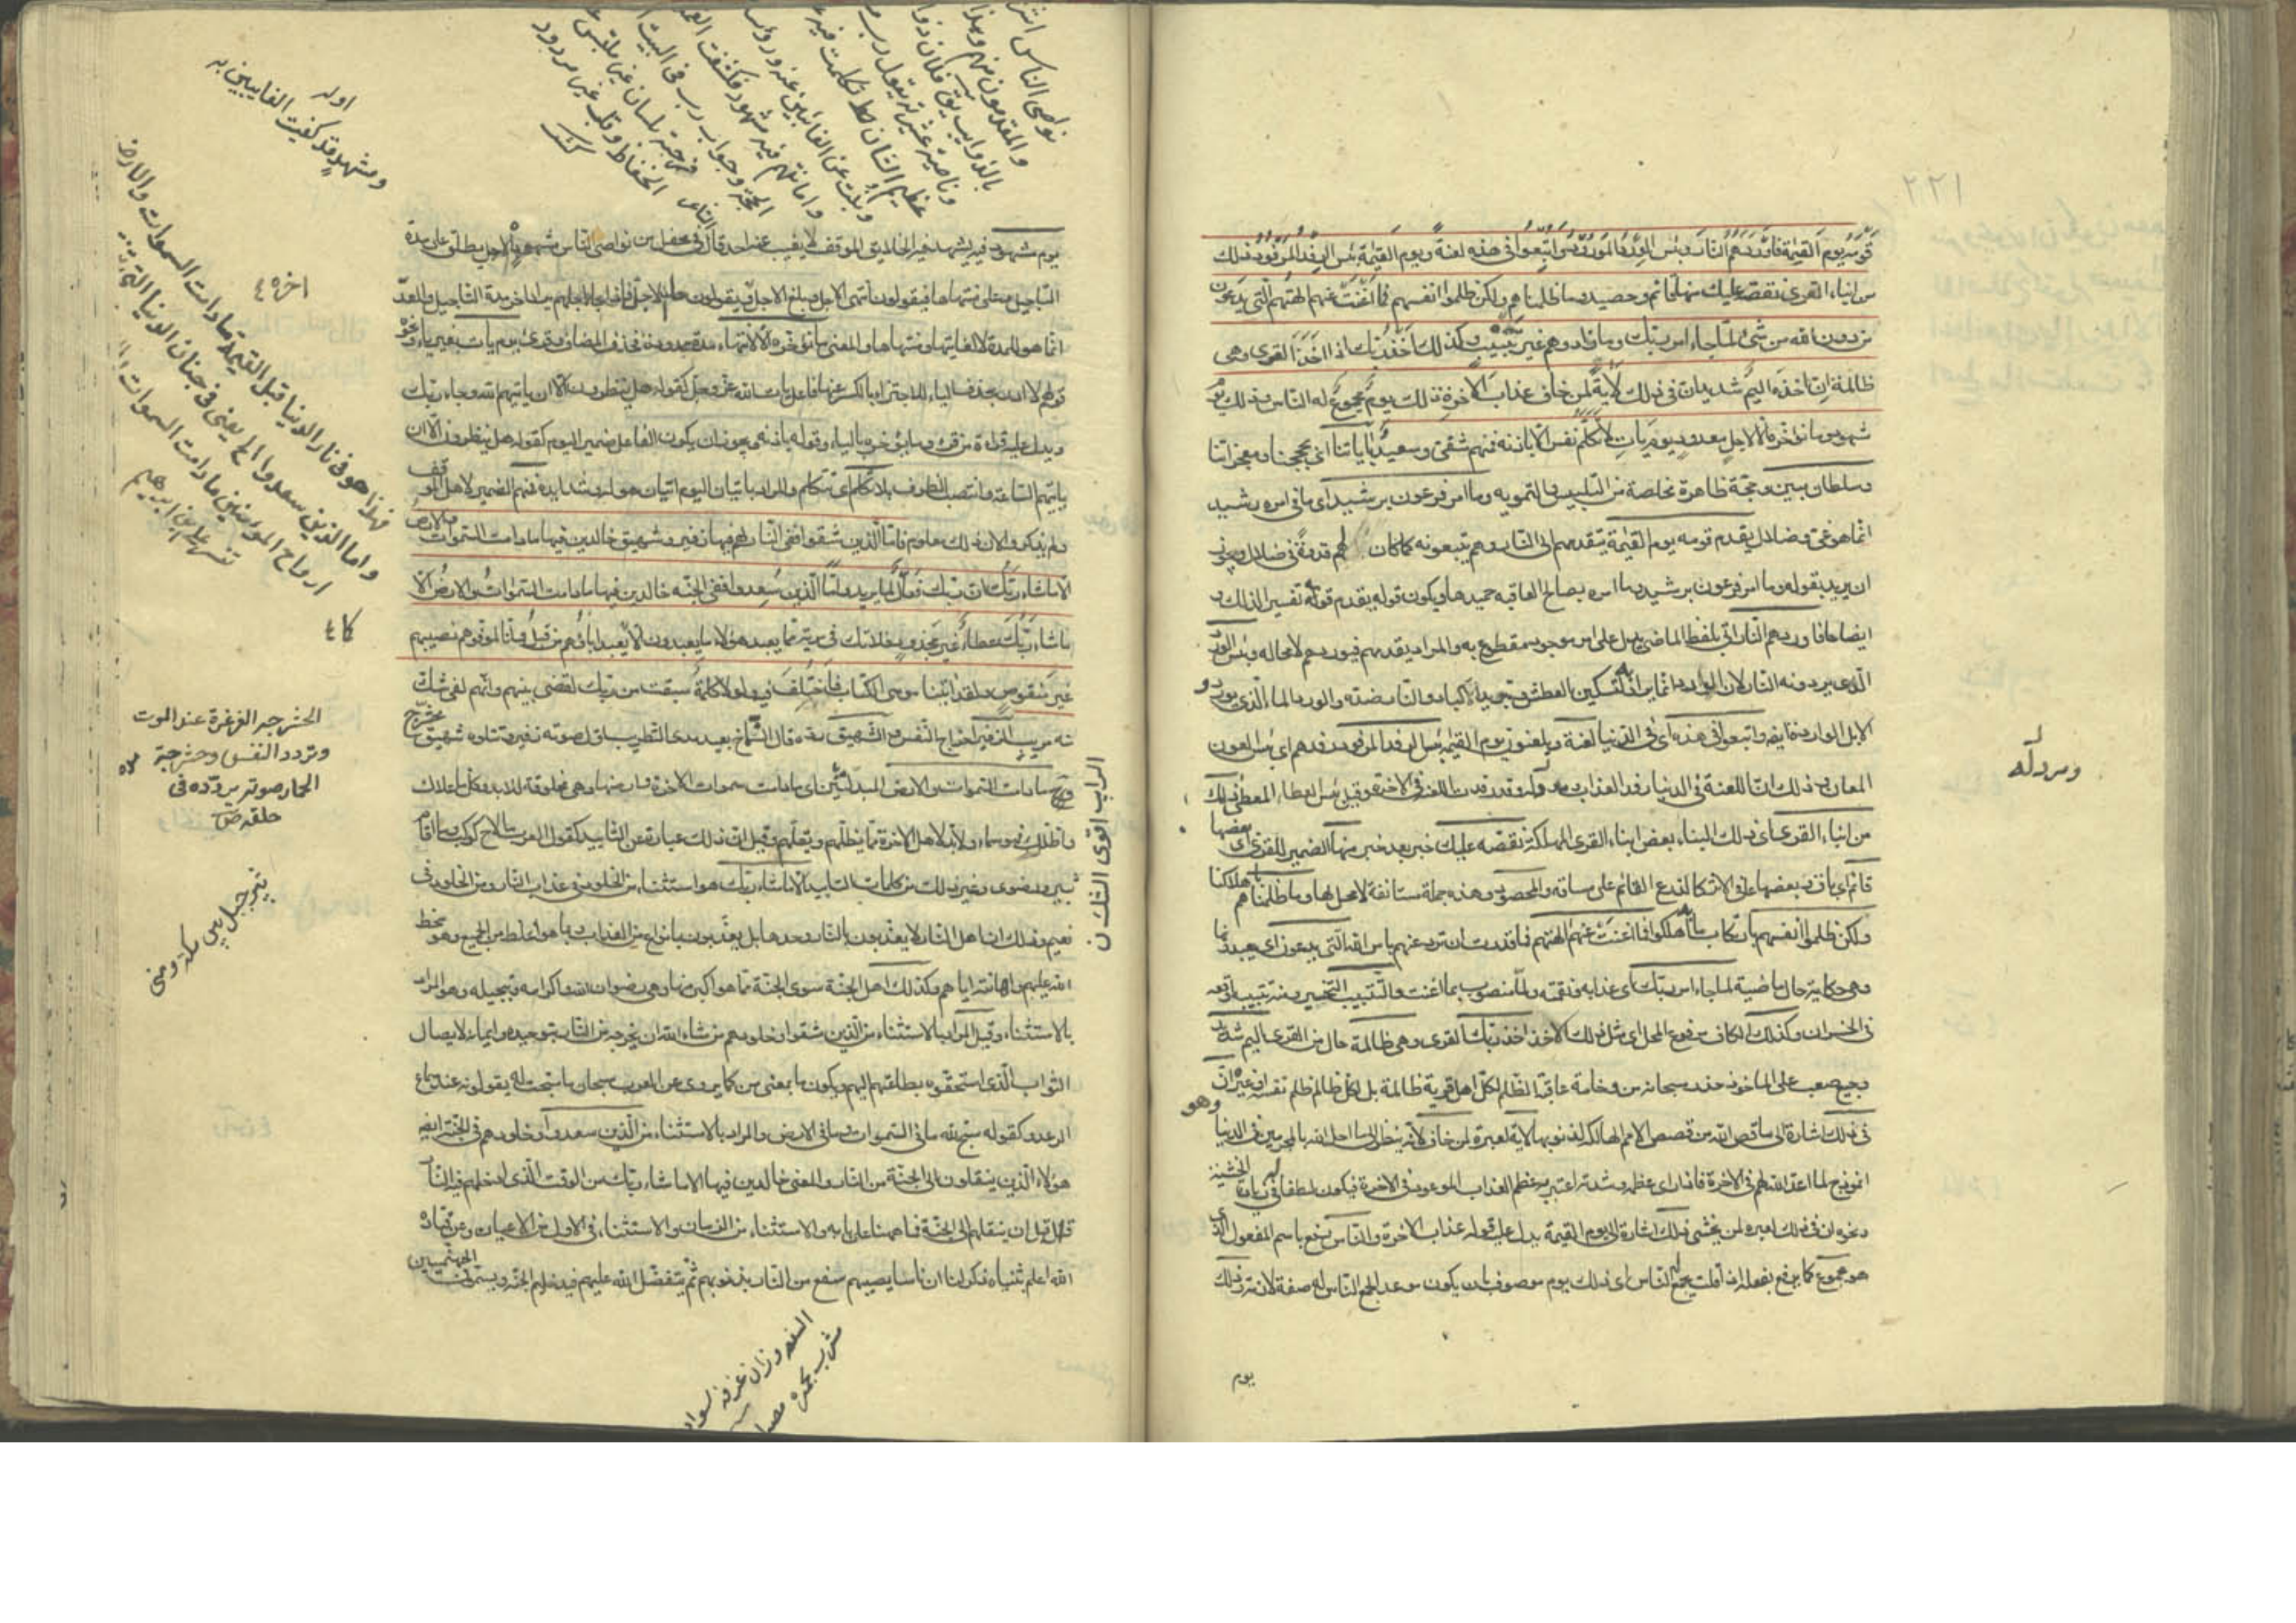 ٢٢١
قومه يوم القيمة فاوردهم النار وبئس الورد المورود واتبعوا في هذه لعنة ويوم القيمة بئس الرفد المرفود ذلك
من انباء القرى نقصه عليك منها قائم وحصيد وما ظلمناهم ولكن ظلموا انفسهم فما اغنت عنهم الهتهم التي يدعون
من دون الله من شئ لما جاء امر ربك وما زادوهم غير تتبيب وكذلك اخذ ربك اذا اخذ القرى وهى
ظالمة ان اخذه اليم شديد ان في ذلك لاية لمن خاف عذاب الاخرة ذلك يوم مجموع له الناس وذلك يوم
مشهود وما نؤخره الا لاجل معدود يوم يات لا تكلم نفس الا باذنه فمنهم شقى وسعيد باياتنا اى بحججنا ومعجزاتنا
وسلطان مبين وحجة ظاهرة مخلصة من التلبيس والتمويه وما امر فرعون برشيد اى ما في امره رشيد
انما هو غى وضلال يقدم قومه يوم القيمة يتقدمهم الى النار وهم يتبعونه كما كان لهم قدوة في ضلال ويجوز
ان يريد بقوله وما امر فرعون برشيد وما امره بصالح العاقبه حميدها ويكون قوله يقدم قومه تفسيرا لذلك و
ايضاحا فاوردهم النار اتى بلفظ الماضى يدل على امر موجود مقطوع به والمراد يقدمهم فيوردهم لا محاله وبئس الورد
الذى يردونه النار لان الوارد انما يراد لتسكين العطش وتبريد الاكباد والنار ضده والورد الماء الذى يورد و
الابل الواردة ايضا واتبعوا في هذه اى في الدنيا لعنة ويلعنون يوم القيمة بئس الرفد المرفود رفدهم اى بئس العون
المعان وذلك ان اللعنة في الدنيا رفد للعذاب ومدد له وقد رفدت باللعنة في الاخرة وقيل بئس العطاء المعطى ذلك
من انباء القرى اى ذلك النباء بعض انباء القرى المهلكة نقصه عليك خبر بعد خبر منها الضمير للقرى اى بعضها
قائم اى باق وبعضها عافى الاثر كالزرع القائم على ساقه والمحصود وهذه جملة مستانفة لا محل لها وما ظلمناهم باهلاكنا
ولكن ظلموا انفسهم بارتكاب ما به اهلكوا فما اغنت عنهم الهتهم فما قدرت ان ترد عنهم باس الله التي يدعون اى يعبدونها
وهى حكاية حال ماضية لما جاء امر ربك اى عذابه ونقمته ولما منصوب بما اغنت والتتبيب التخسير ومنه تببه اوقعه
في الخسران وكذلك الكاف مرفوع المحل اى مثل ذلك الاخذ اخذ ربك القرى وهى ظالمة حال من القرى اليم شديد
وجيع صعب على الماخوذ حذر سبحانه من وخامة عاقبة الظلم لكل اهل قرية ظالمة بل لكل ظالم ظلم نفسه او غيره ان
في ذلك اشارة الى ما قص الله من قصص الامم الهالكه لذنوبها لاية لعبرة لمن خاف لانه ينظر الى ما احل الله بالمجرمين في الدنيا وهو
انموذج لما اعد الله لهم في الاخرة فاذا راى عظمه وشدته اعتبر به عظم العذاب الموعود في الاخرة فيكون لطفا في زيادة الخشية
ونحوه ان في ذلك لعبرة لمن يخشى ذلك اشارة الى يوم القيمة يدل عليه قوله عذاب الاخرة والناس رفع باسم المفعول الذى
هو مجموع كما يرفع بفعله اذا قلت يجمع له الناس اى ذلك يوم موصوف بان يكون موعدا لجمع الناس له صفة لازمة وذلك
يوم
ومدد له
يوم مشهود فيه يشهد فيه الخلايق الموقف لا يغيب عنه احد قال في محفل من نواصى الناس مشهود والاجل يطلق على مدة
التاجيل وعلى منتهاها فيقولون انتهى الاجل وبلغ الاجل ويقولون حل الاجل فاذا جاء اجلهم يراد اخر مدة التاجيل والعد
انما هو للمدة لا لغايتها ومنتهاها والمعنى وما نؤخره الا لانتهاء مدة معدودة فحذف المضاف وقرئ يوم يات بغير ياء ونحوه
قولهم لا ادر بحذف الياء للاجتزاء بالكسر عنها فاعل يات الله عز وجل كقوله هل ينظرون الا ان ياتيهم الله وجاء ربك
ويدل عليه قراءة من قرء وما يؤخره بالياء وقوله باذنه ويجوز ان يكون الفاعل ضمير اليوم كقوله هل ينظرون الا ان
ياتيهم الساعة وانتصب الظرف بلا تكلم اى لا تتكلم والمراد باتيان اليوم اتيان هوله وشدايده فمنهم الضمير لاهل الموقف
ولم يذكروا لان ذلك معلوم فاما الذين شقوا ففى النار لهم فيها زفير وشهيق خالدين فيها ما دامت السموات والارض
الا ما شاء ربك ان ربك فعال لما يريد واما الذين سعدوا ففى الجنة خالدين فيها ما دامت السموات والارض الا
ما شاء ربك عطاء غير مجذوذ فلا تك في مرية مما يعبد هؤلاء ما يعبدون الا كما يعبد اباؤهم من قبل وانا لموفوهم نصيبهم
غير منقوص ولقد اتينا موسى الكتاب فاختلف فيه ولولا كلمة سبقت من ربك لقضى بينهم وانهم لفى شك
منه مريب الزفير اخراج النفس والشهيق رده قال الشماخ بعيد مدى التطريب اول صوته زفير وتتلوه شهيق محشرج
ما دامت السموات والارض المبدلتين اى ما دامت سموات الاخرة وارضها وهى مخلوقة للابد وكل ما علاك
واظلك فهو سماء ولابد لاهل الاخرة مما يظلهم ويقلهم وقيل ان ذلك عبارة عن التابيد كقول العرب ما لاح كوكب وما اقام
ثبير ورضوى وغير ذلك من كلمات التابيد الا ما شاء ربك هو استثناء من الخلود في عذاب النار ومن الخلود في
نعيم وذلك ان اهل النار لا يعذبون بالنار وحدها بل يعذبون بانواع من العذاب وبما هو اغلظ من الجميع وهو سخط
الله عليهم واهانته اياهم وكذلك اهل الجنة سوى الجنة مما هو اكبر منها وهى رضوان الله واكرامه وتبجيله وهو المراد
بالاستثناء وقيل المراد بالاستثناء من الذين شقوا وخلودهم من شاء الله ان يخرجه من النار بتوحيده وايمانه لايصال
الثواب الذى استحقوه بطاعتهم اليهم ويكون ما بمعنى من كما يروى عن العرب سبحان ما سبحت له يقولونه عند سماع
الرعد وكقوله سبح لله ما في السموات وما في الارض والمراد بالاستثناء من الذين سعدوا وخلودهم في الجنة ايضا
هؤلاء الذين ينقلون الى الجنة من النار والمعنى خالدين فيها الا ما شاء ربك من الوقت الذى ادخلهم فيه النار
قبل ان ينقلهم الى الجنة فما ههنا على بابه والاستثناء من الزمان والاستثناء في الاول من الاعيان وعن قتادة
الله اعلم بثنياه ذكر لنا ان ناسا يصيبهم سفع من النار بذنوبهم ثم يتفضل الله عليهم فيدخلهم الجنة ويسمون الجهنميين
اوله
ومشهد قد كفيت الغايبين به
اخره ٤
فهذا هو في نار الدنيا قبل القيمة ما دامت السموات والارض
واما الذين سعدوا الخ يعنى في جنان الدنيا التى
ارواح المؤمنين ما دامت السموات
تفسير على بن ابرهيم
الحشرجه الغرغرة عند الموت
وتردد النفس وحشرجة
الحمار صوته يردده في
حلقه ص
ثبير جبل بين مكة ومنى
نواصى الناس
والمقدمون منهم
عظيم الشان
الحفاظ وقلب غير مردود